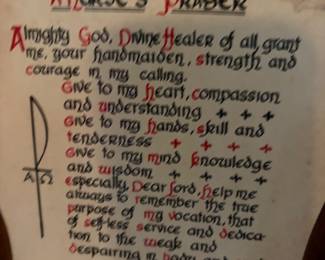 A Nurse's Prayer
Almighty God, Divine Healer of all, grant
me, your handmaiden, strength and
courage in my calling.
Give to my heart, compassion
and understanding + + +
Give to my hands, skill and
tenderness + + + +
Give to my mind knowledge
and wisdom + + + +
Especially, Dear Lord, help me
always to remember the true
purpose of my vocation, that
of selfless service and dedica-
tion to the weak and
despairing in body and
A Ω